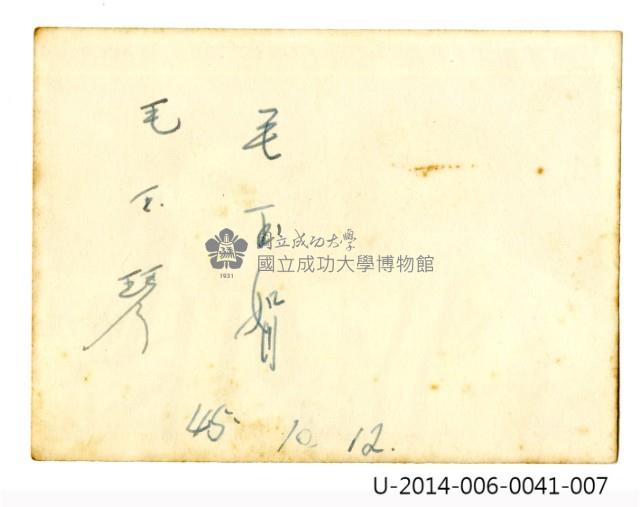 毛玉
毛玉琴
45 10 12.
國立成功大學
國立成功大學博物館
1931
U-2014-006-0041-007